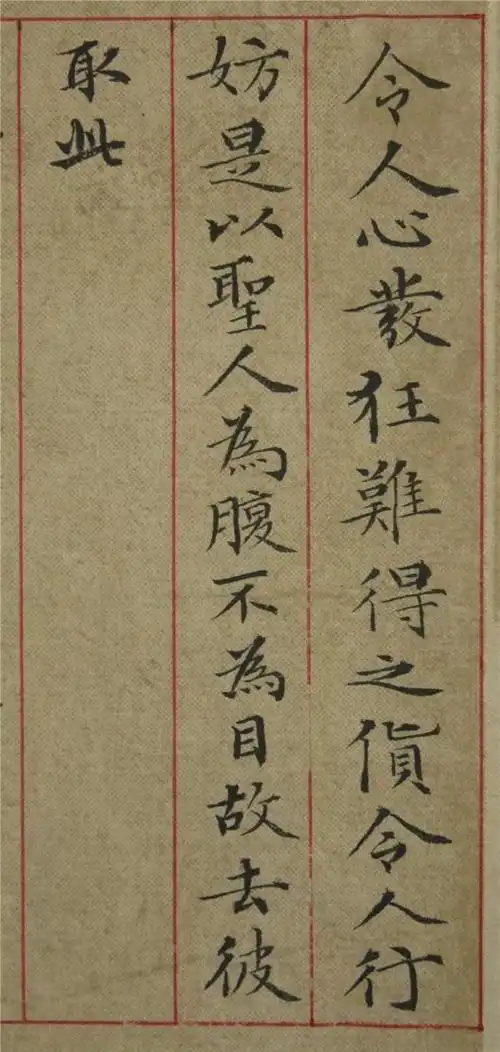 令人心發狂難得之貨令人行
妨是以聖人為腹不為目故去彼
取此